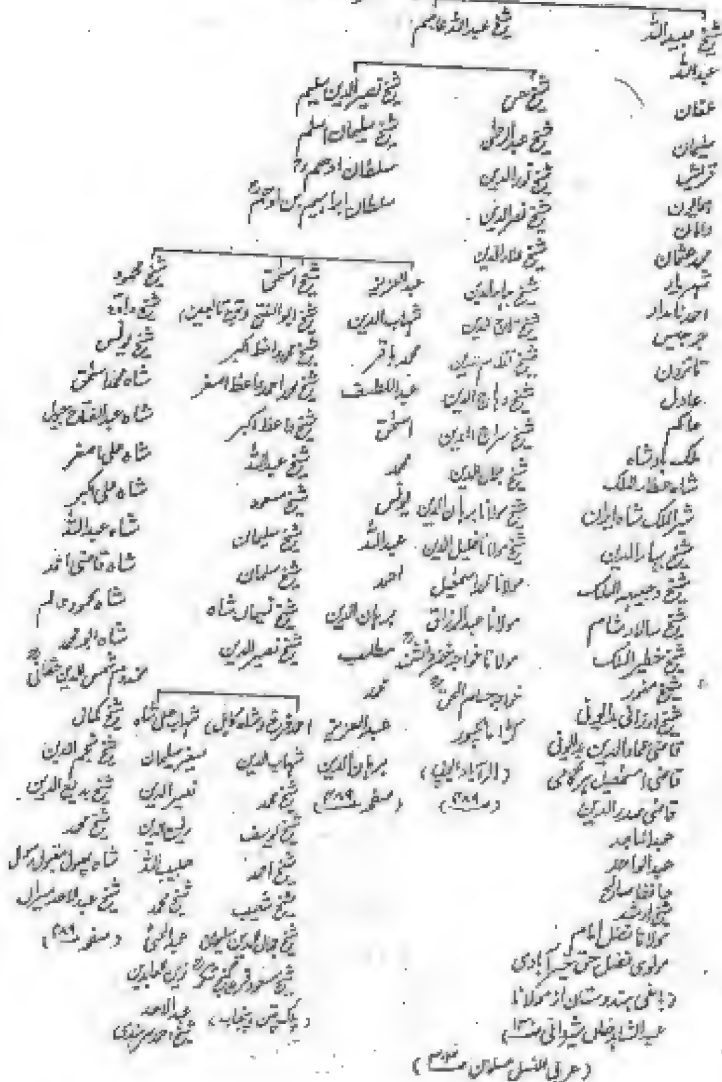 شیخ عبیداللہ
عبداللہ
عفان
سلیمان
قریش
ہمایون
دامان
محمد عثمان
شہریار
احمد نامدار
جرجیس
عادل
حاکم
ملک بادشاہ
شاہ عطار الملک
شیر الملک شاہ ایران
شیخ بہاء الدین
شیخ وجیہہ الملک
شیخ سالار شام
شیخ خطیر الملک
شیخ منور
شیخ ارزانی بدایونی
قاضی عماد الدین بدایونی
قاضی اسمٰعیل ہرگامی
قاضی صدر الدین
عبدالماجد
عبدالواحد
حافظ صالح
شیخ ارشد
مولانا فضل امام
مولوی فضل حق خیر آبادی
(باغی ہندوستان از مولانا
عبدالشاہد خاں شیروانی صـ۱۳)
شیخ عبداللہ عاصم
شیخ عبدالرحمٰن
شیخ نور الدین
شیخ نصر الدین
شیخ علاء الدین
شیخ بہاء الدین
شیخ تاج الدین
شیخ وہاج الدین
شیخ سراج الدین
شیخ جلال الدین
شیخ مولانا برہان الدین
شیخ مولانا خلیل الدین
مولانا محمد اسمٰعیل
مولانا عبدالرزاق
مولانا خواجہ
خواجہ حسام الحق
کڑا مانکپور
(الہ آباد، یوپی)
(صـ۳۸۹)
شیخ نصیر الدین سلیم
شیخ سلیمان اسلم
سلطان ادھم
سلطان ابراہیم بن ادھم
عبدالعزیز
شہاب الدین
محمد باقر
عبداللطیف
اسحٰق
محمد
یونس
عبداللہ
احمد
برہان الدین
مطلب
محمد
عبدالعزیز
برہان الدین
(صفحہ ۳۸۹)
شیخ اسحٰق
شیخ ابوالفتح
شیخ محمد واعظ اکبر
شیخ محمد احمد واعظ اصغر
شیخ واعظ اکبر
شیخ عبداللہ
شیخ مسعود
شیخ سلیمان
شیخ سلمان
شیخ نصیر الدین
احمد فرخ شاہ (کابل)
شہاب الدین
شیخ محمد
شیخ یوسف
شیخ احمد
شیخ شعیب
شیخ جمال الدین سلیمان
شیخ مسعود فرید گنج شکر
(پاک پتن پنجاب)
سلیمان
نصیر الدین
حبیب اللہ
شیخ محمد
عبدالحئ
زین العابدین
عبدالاحد
شیخ احمد سرہندی
شیخ محمود
شیخ داؤد
شیخ یونس
شاہ محمد اسحٰق
شاہ عبدالفتاح جمیل
شاہ علی اصغر
شاہ علی اکبر
شاہ عبداللہ
شاہ قاضی احمد
شاہ محمود عالم
شاہ ابو محمد
مخدوم شمس الدین
شیخ کمال
شیخ نجم الدین
شیخ بدیع الدین
شیخ محمد
شیخ عبدالاحد
(صفحہ ۳۸۹)